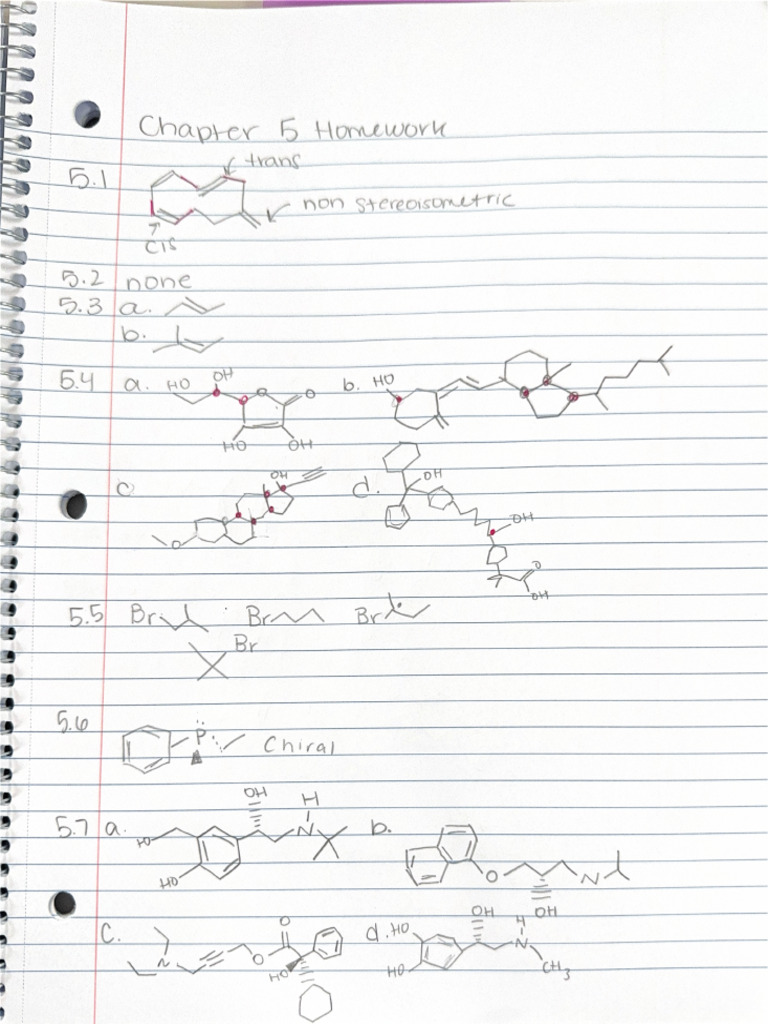 Chapter 5 Homework
5.1 trans
non stereoisometric
cis
5.2 none
5.3 a.
b.
5.4 a. HO OH O O HO OH b. HO
c OH O d. OH OH O OH
5.5 Br Br Br
Br
5.6 P Chiral
5.7 a. HO HO OH H N b. O OH N
c. N O O HO d. HO HO OH H N CH3